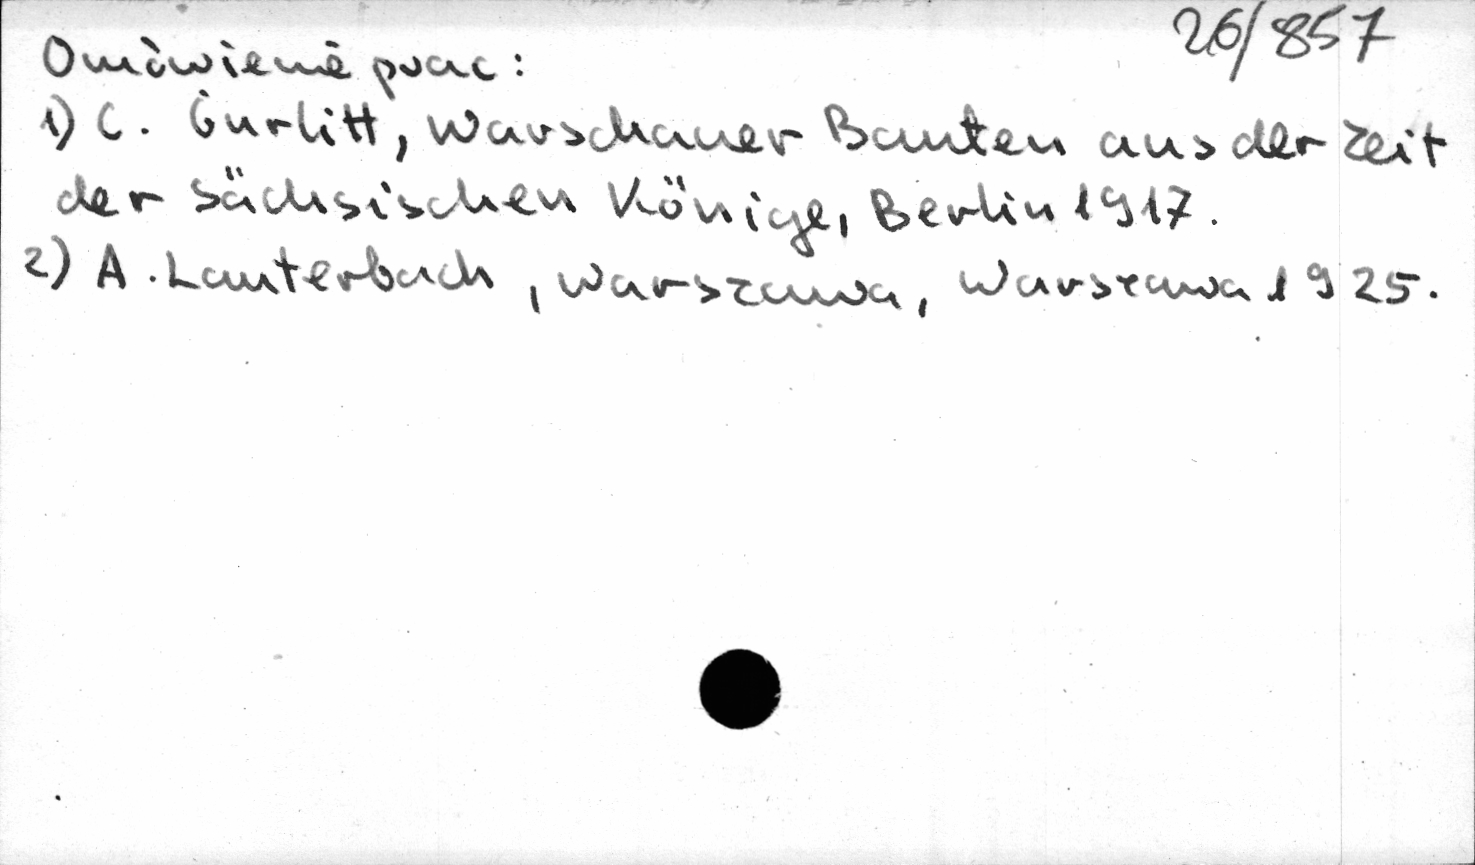 26/857
Omówienie prac:
1) C. Gurlitt, Warschauer Bauten aus der Zeit
der sächsischen Könige, Berlin 1917.
2) A. Lauterbach, Warszawa, Warszawa 1925.